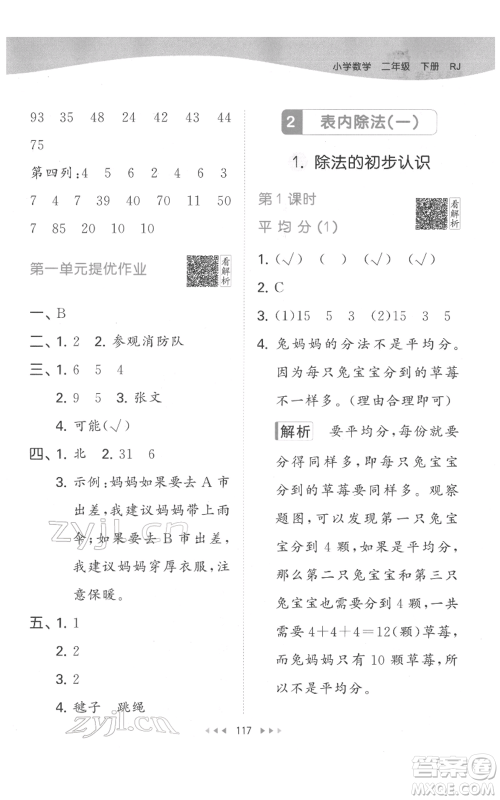 小学数学 二年级 下册 RJ
93 35 48 58 63 35 44
75
第四列:4 5 6 2 3 6
7 4 7 39 10 41 10 50
7 89 10 91 10 100
第一单元提优作业
看解析
一、B
二、1. 2 2. 参观消防队
三、1. 6 5 4
2. 9 5 3. 张文
4. 可能(√)
四、1. 北 2. 31 6
3. 示例:妈妈如果要去 A 市
出差,我建议妈妈带上雨
伞;如果要去 B 市出差,
我建议妈妈穿厚衣服,注
意保暖。
五、1. 1
2. 2
4. 毽子 跳绳
2 表内除法(一)
1. 除法的初步认识
第 1 课时
平均分(1)
看解析
1. (√) ( ) (√) (√)
2. C
3. (1)15 3 5 (2)15 5 3
4. 兔妈妈的分法不是平均分。
因为每只兔宝宝分到的草莓
不一样多。(理由合理即可)
解析 要平均分,就要使每份
分得同样多,即每只兔宝宝
分到的草莓要同样多。观察
题图,可以发现第一只兔宝
宝分到 4 颗,如果是平均分,
那么第二只兔宝宝和第三只
兔宝宝也需要分到 4 颗,一共
需要 4+4+4=12(颗)草莓,
而兔妈妈只有 10 颗草莓,所
以兔妈妈的分法不是平均分。
117
zyjl.cn
zyjl.cn
作业精灵